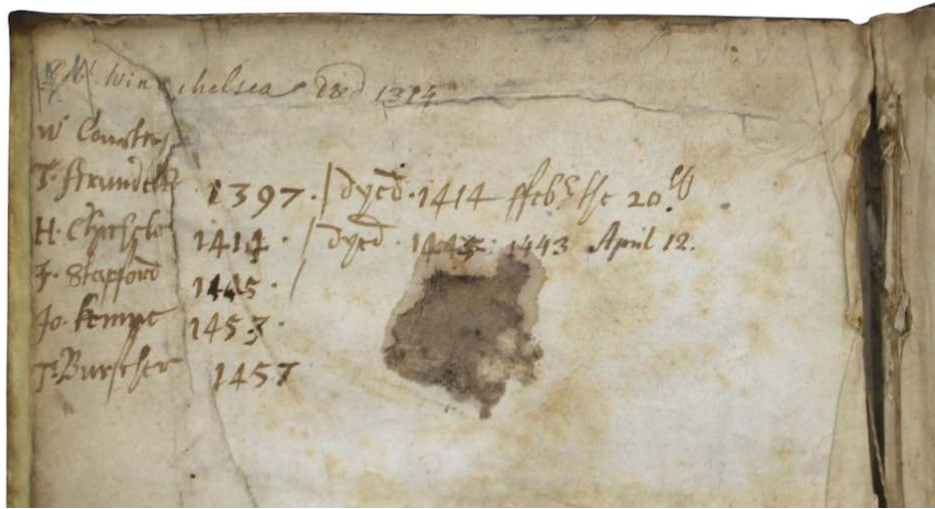 R. Winchelsea Died 1314
W Courtney
T. Arrundell 1397. / dyed. 1414 ffeb: the 20.th
H. Chichele 1414. / dyed. 1443 April 12.
J. Stafford 1445.
Jo. Kempe 1453.
T. Burscher 1457